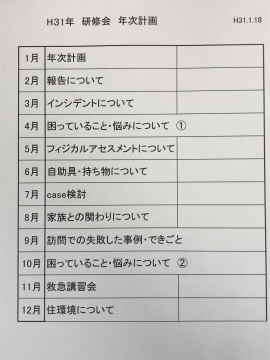 H31年 研修会 年次計画
H31.1.18
1月 年次計画
2月 報告について
3月 インシデントについて
4月 困っていること・悩みについて ①
5月 フィジカルアセスメントについて
6月 自助具・持ち物について
7月 case検討
8月 家族との関わりについて
9月 訪問での失敗した事例・できごと
10月 困っていること・悩みについて ②
11月 救急講習会
12月 住環境について